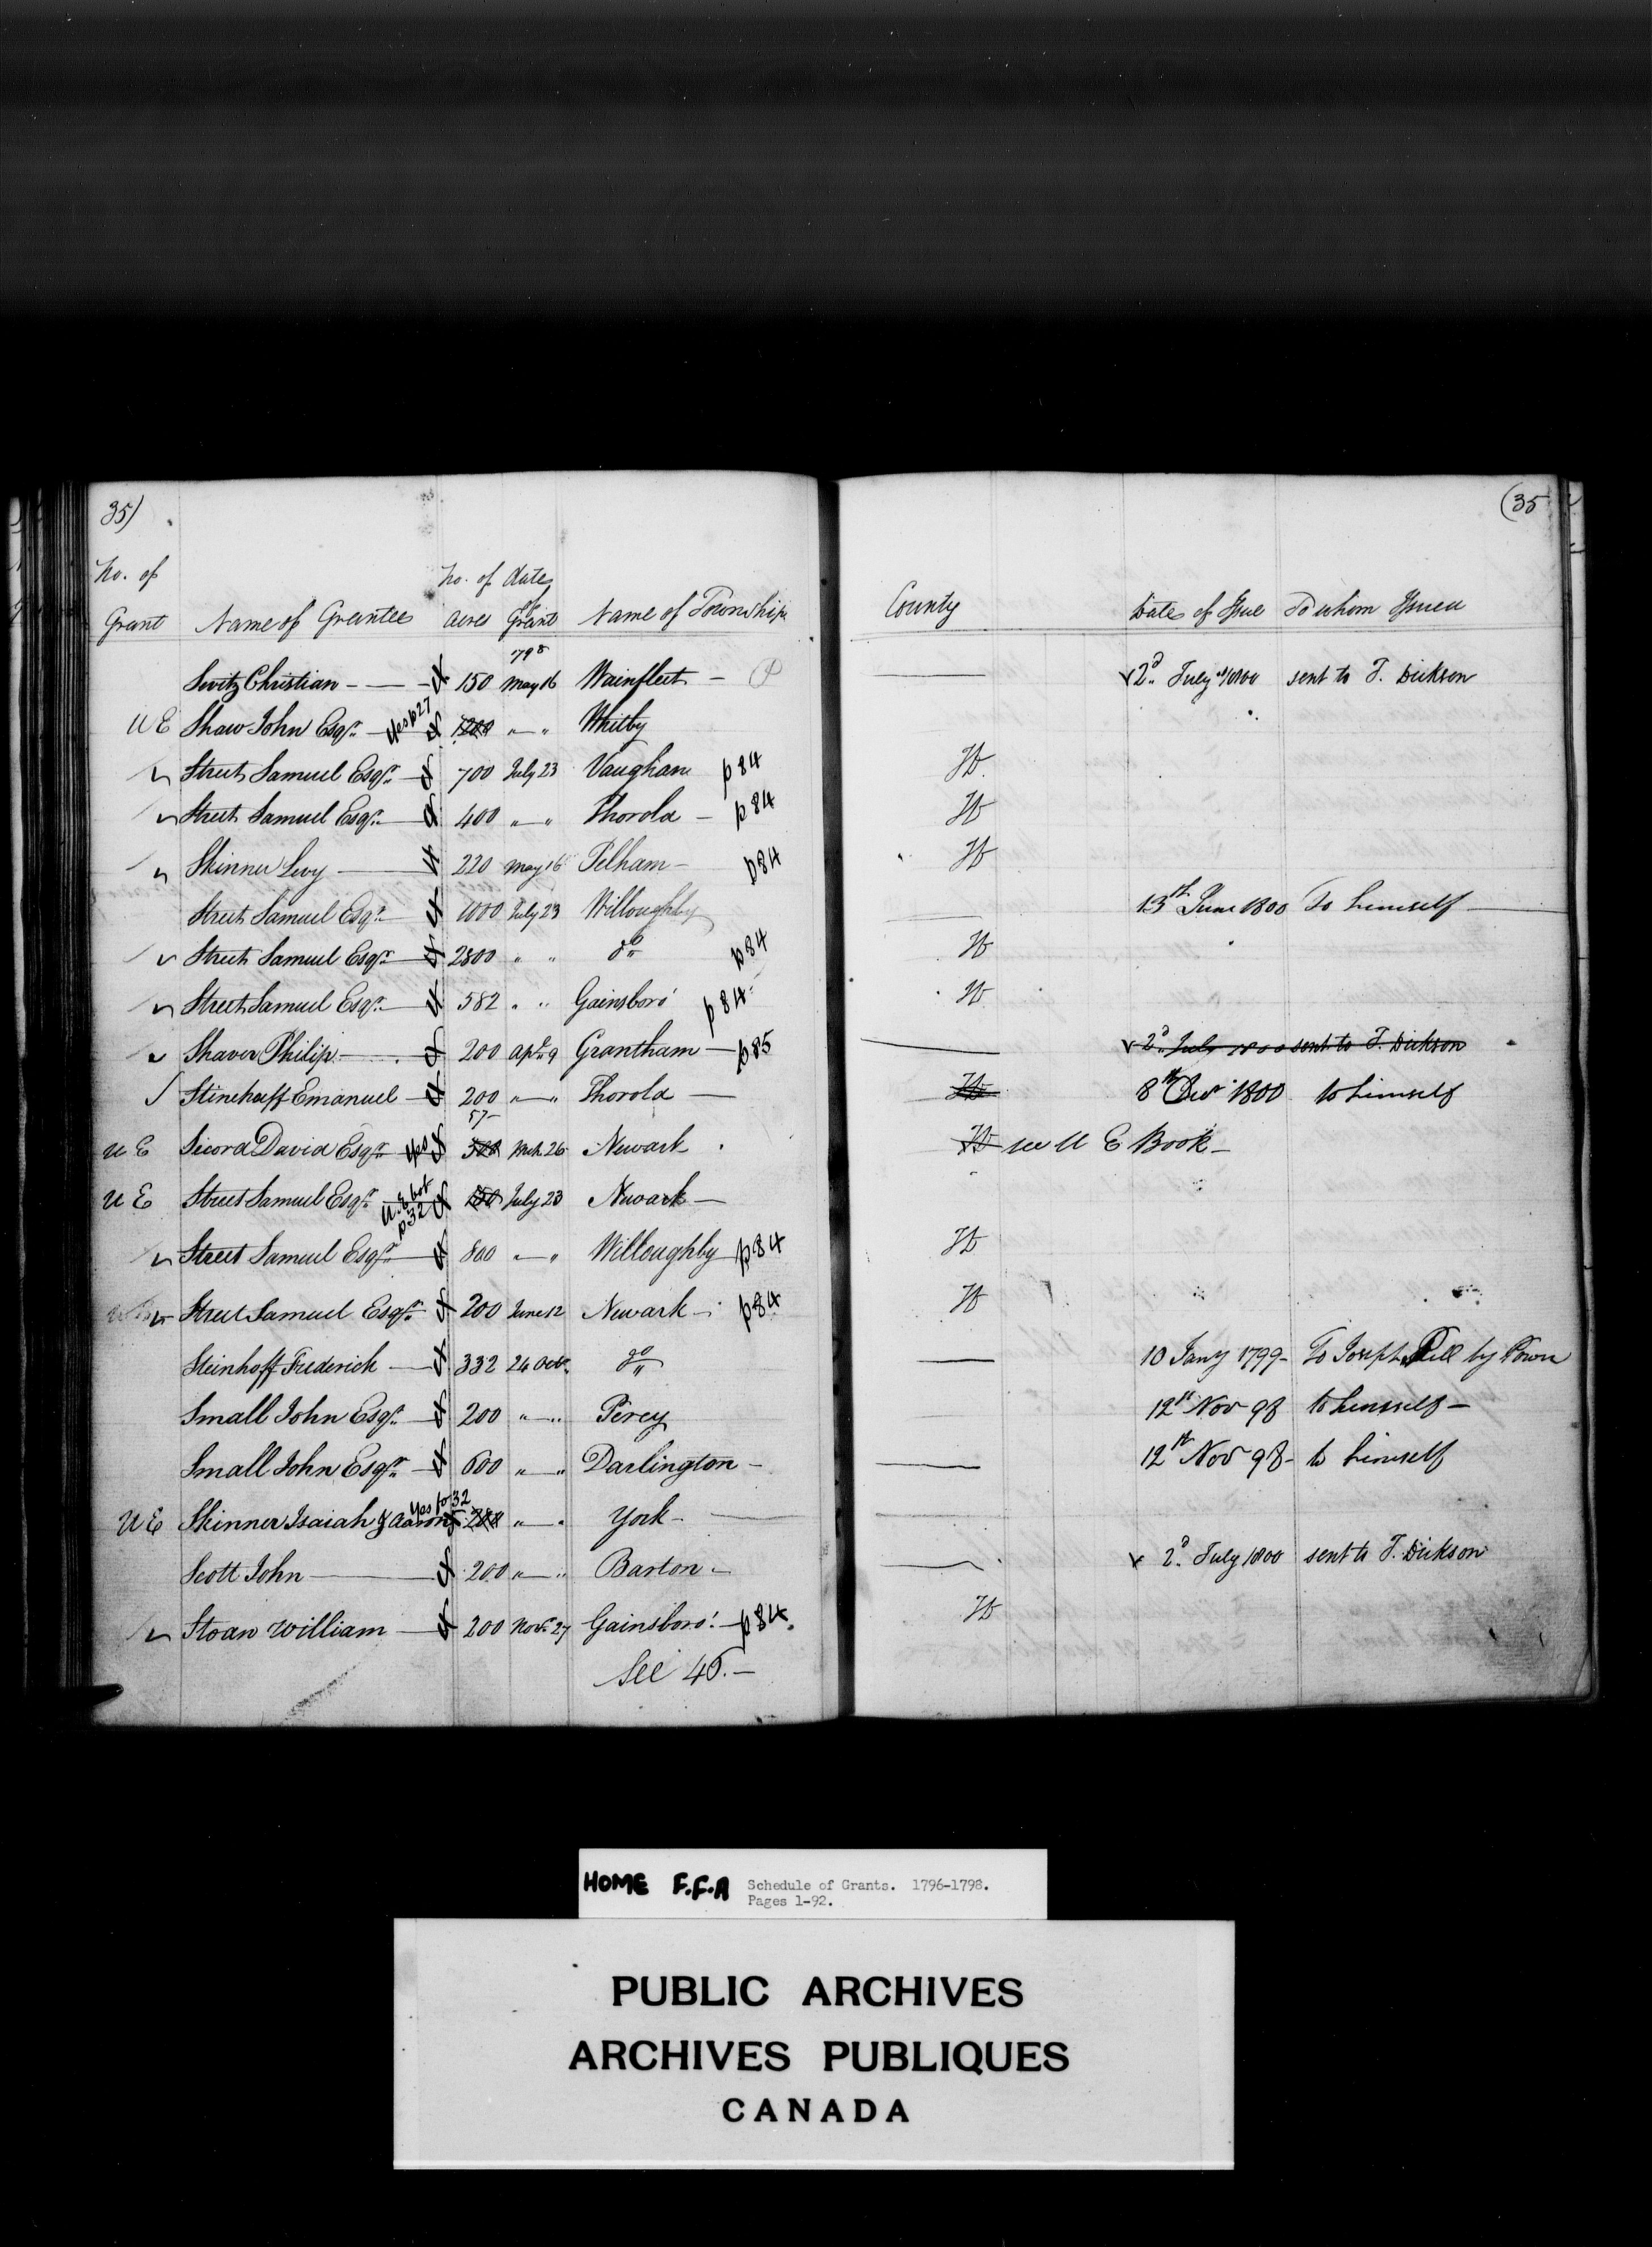 35)
(35
No. of
Grant Name of Grantee No. of acres date of Grant Name of Township County Date of Issue To whom Issued
1798
Switz Christian - 150 May 16 Wainfleet - P 2d July 1800 sent to T. Dickson
U E Shaw John Esqr. yes p27 1200 " " Whitby
Street Samuel Esqr. 700 July 23 Vaughan p84 H
Street Samuel Esqr. 400 " " Thorold - p84 H
Skinner Levy 220 May 16 Pelham - p84 H
Street Samuel Esqr. 1000 July 23 Willoughby 13th June 1800 To himself
Street Samuel Esqr. 2800 " " do p84 H
Street Samuel Esqr. 582 " " Gainsboro' p84 H
Shaver Philip 200 Apl. 9 Grantham - p85 2d July 1800 sent to T. Dickson
Stinehoff Emanuel 200 " " Thorold - H 8th Decr 1800 to himself
57-
U E Secord David Esqr. yes 500 Mch. 26 Newark H see U E Book -
U E Street Samuel Esqr. U.E. bot p32 150 July 23 Newark -
Street Samuel Esqr. 800 " " Willoughby p84 H
Street Samuel Esqr. 200 June 12 Newark - p84 H
Steinhoff Frederick 332 26 Octr. do 10 Jany 1799 - To Joseph by Power
Small John Esqr. 200 " " Percy 12th Nov 98 to himself -
Small John Esqr. 600 " " Darlington - 12th Nov 98 - to himself
U E Skinner Isaiah & Aaron yes p32 " " York -
Scott John 200 " " Barton - 2d July 1800 sent to T. Dickson
Sloan William 200 Novr. 27 Gainsboro'. - p84. H
See 45. -
HOME F.F.A Schedule of Grants. 1796-1798.
Pages 1-92.
PUBLIC ARCHIVES
ARCHIVES PUBLIQUES
CANADA